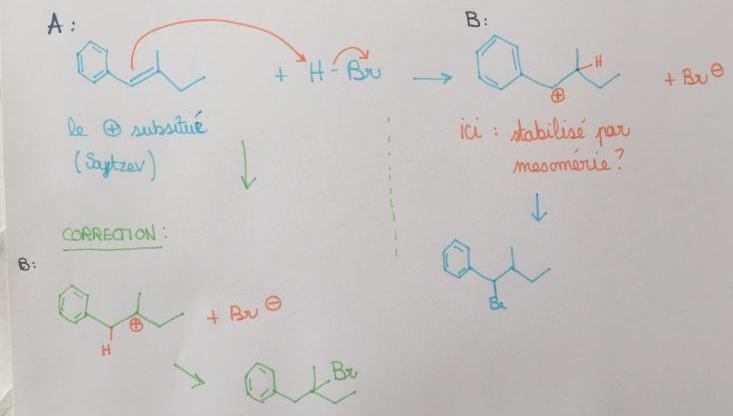 A:
B:
+ H - Br
H
⊕
+ Br ⊖
le ⊕ subsitué
(Saytzev)
ici : stabilisé par
mesomérie ?
CORRECTION :
B:
⊕
H
+ Br ⊖
Br
Br